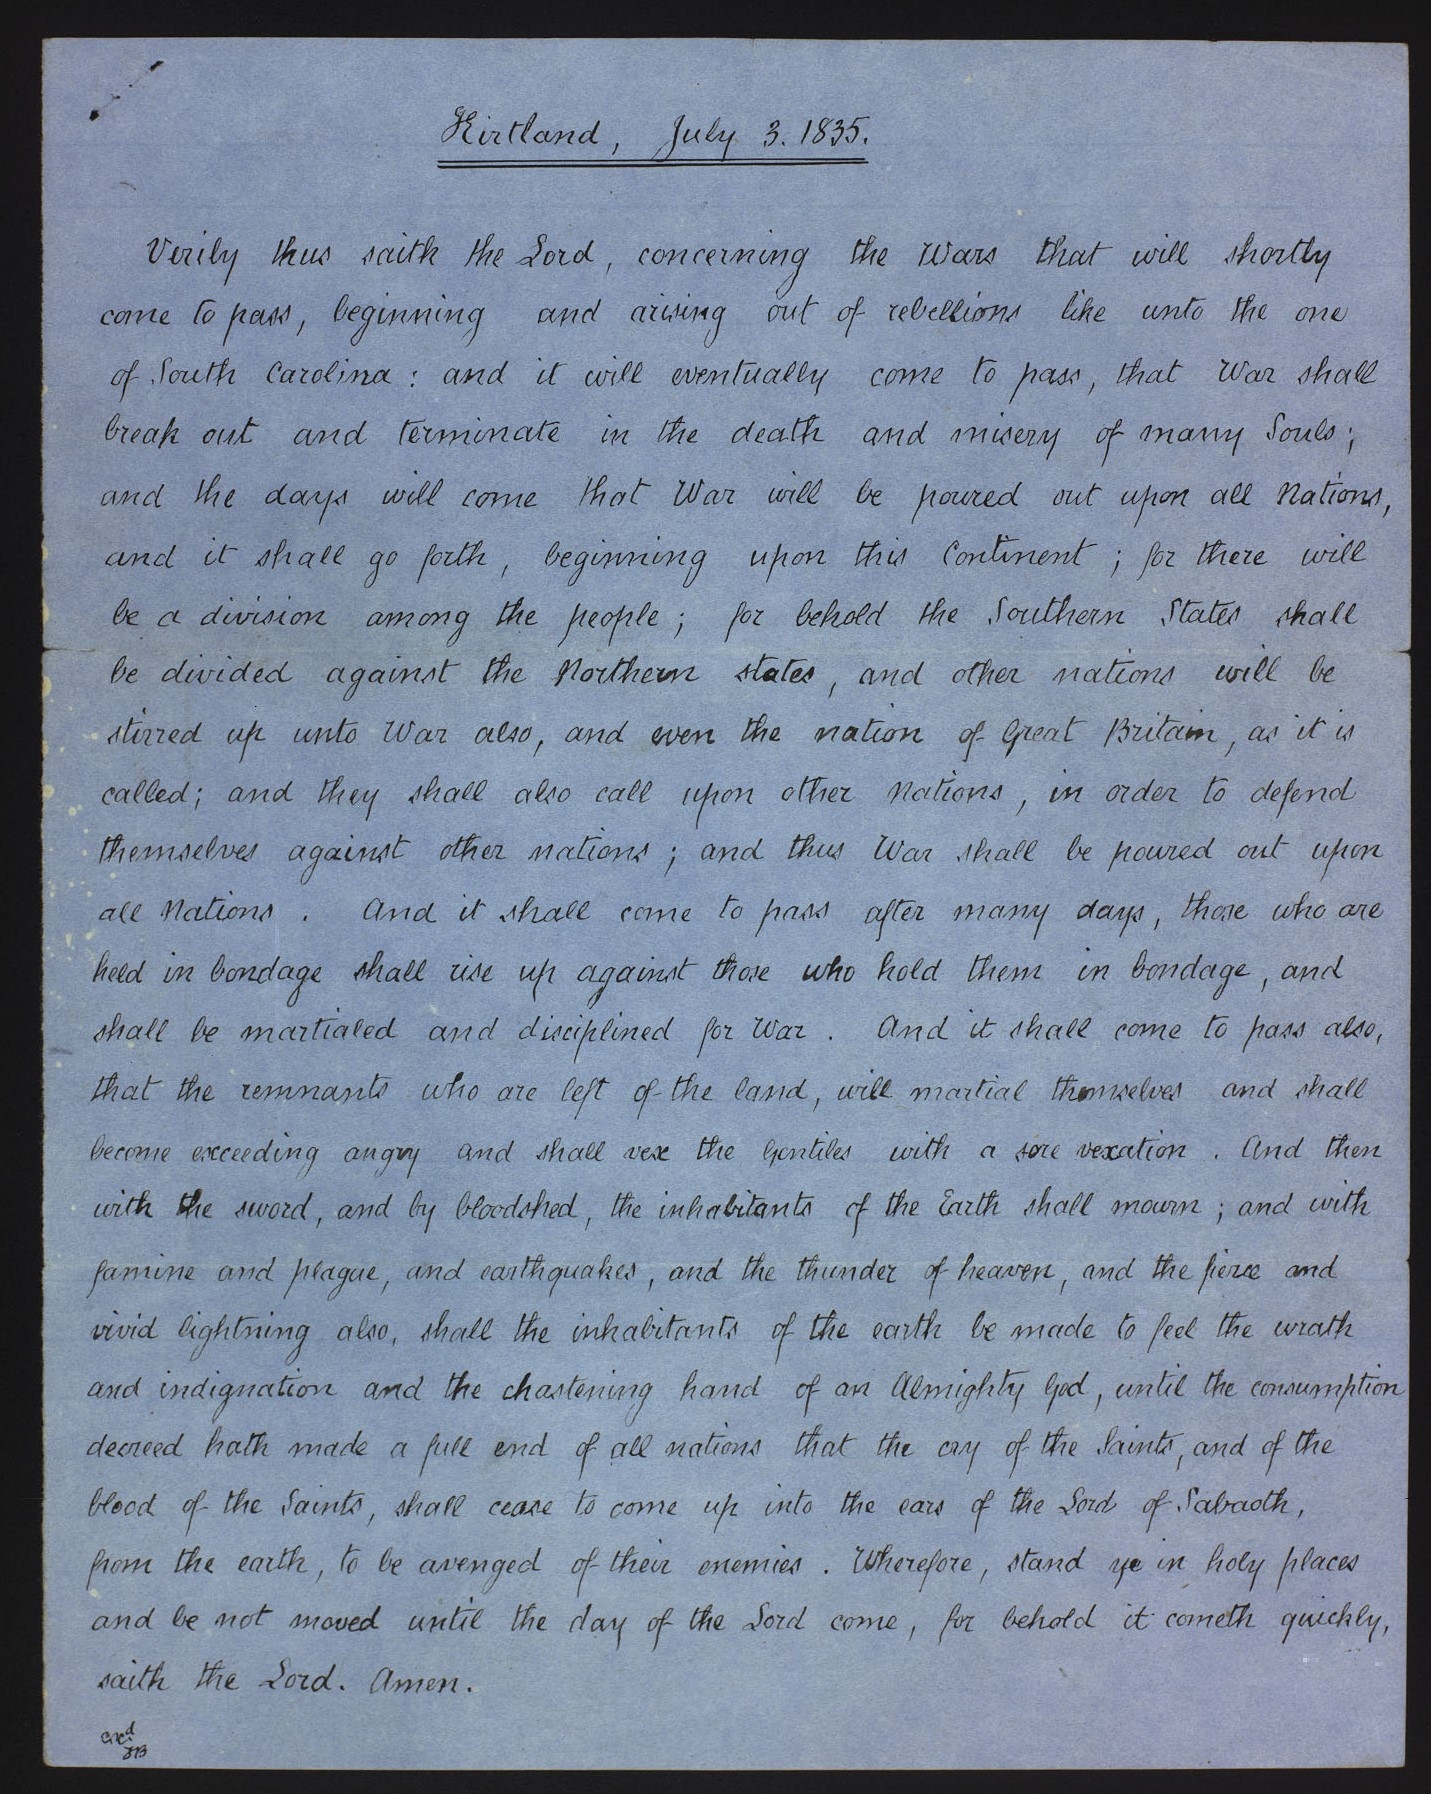 Kirtland, July 3. 1835.
Verily thus saith the Lord, concerning the Wars that will shortly
come to pass, beginning and arising out of rebellions like unto the one
of South Carolina: and it will eventually come to pass, that War shall
break out and terminate in the death and misery of many Souls;
and the days will come that War will be poured out upon all Nations,
and it shall go forth, beginning upon this Continent; for there will
be a division among the people; for behold the Southern States shall
be divided against the Northern states, and other nations will be
stirred up unto War also, and even the nation of Great Britain, as it is
called; and they shall also call upon other Nations, in order to defend
themselves against other nations; and thus War shall be poured out upon
all Nations. And it shall come to pass after many days, those who are
held in bondage shall rise up against those who hold them in bondage, and
shall be martialed and disciplined for War. And it shall come to pass also,
that the remnants who are left of the land, will martial themselves and shall
become exceeding angry and shall vex the Gentiles with a sore vexation. And then
with the sword, and by bloodshed, the inhabitants of the Earth shall mourn; and with
famine and plague, and earthquakes, and the thunder of heaven, and the fierce and
vivid lightning also, shall the inhabitants of the earth be made to feel the wrath
and indignation and the chastening hand of an Almighty God, until the consumption
decreed hath made a full end of all nations that the cry of the Saints, and of the
blood of the Saints, shall cease to come up into the ears of the Lord of Sabaoth,
from the earth, to be avenged of their enemies. Wherefore, stand ye in holy places
and be not moved until the day of the Lord come, for behold it cometh quickly,
saith the Lord. Amen.